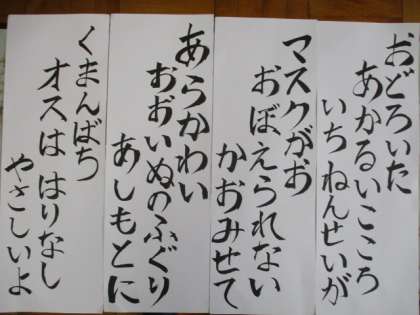 おどろいた
あかるいこころ
いちねんせいが
マスクがお
おぼえられない
かおみせて
あらかわい
おおいぬのふぐり
あしもとに
くまんばち
オスは はりなし
やさしいよ